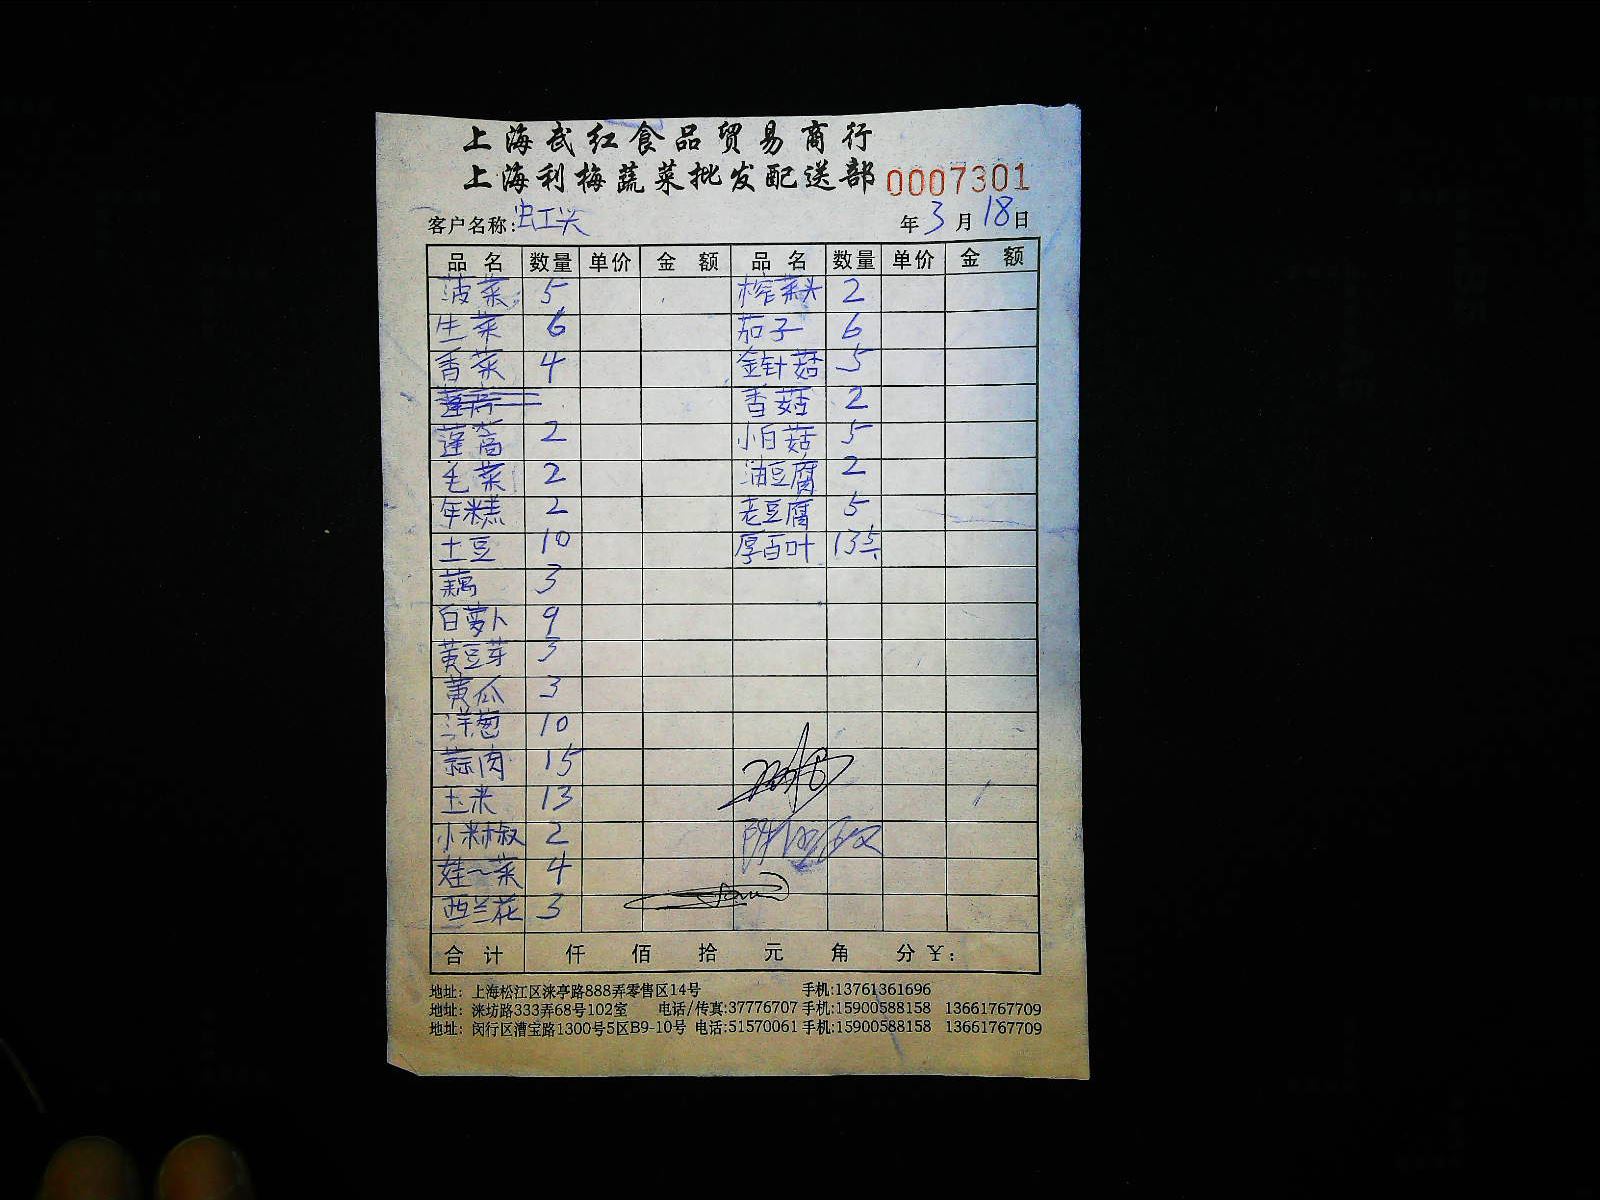 上海武红食品贸易商行
上海利梅蔬菜批发配送部 0007301
客户名称:虹头 年3月18日
品名 数量 单价 金额 品名 数量 单价 金额
菠菜 5 榨菜头 2
生菜 6 茄子 6
香菜 4 金针菇 5
香菇 2
蓬蒿 2 小白菇 5
毛菜 2 油豆腐 2
年糕 2 老豆腐 5
土豆 10 厚百叶 13
藕 3
白萝卜 9
黄豆芽 3
黄瓜 3
洋葱 10
蒜肉 15
玉米 13
小米椒 2
娃~菜 4
西兰花 3
合计 仟 佰 拾 元 角 分¥:
地址: 上海松江区涞亭路888弄零售区14号 手机:13761361696
地址: 涞坊路333弄68号102室 电话/传真:37776707 手机:15900588158 13661767709
地址: 闵行区漕宝路1300号5区B9-10号 电话:51570061 手机:15900588158 13661767709